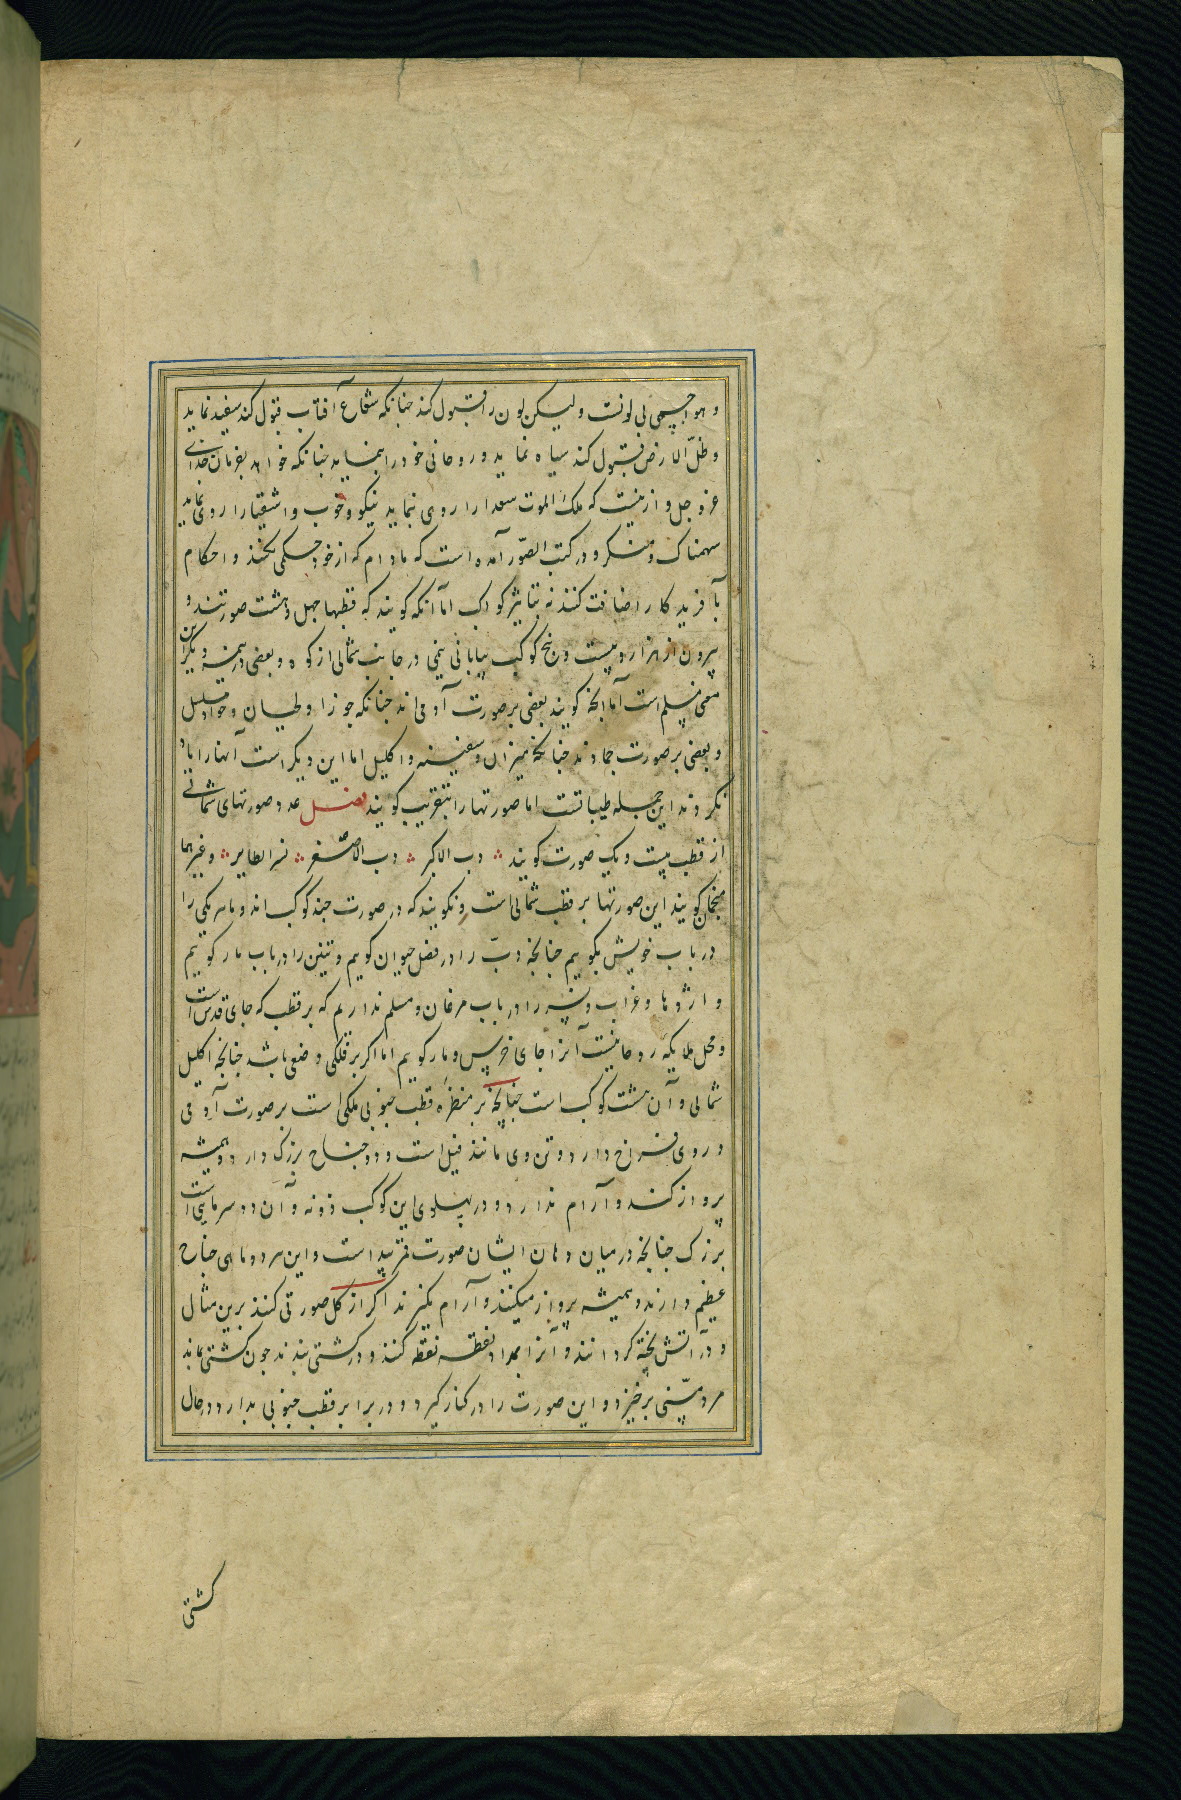 و هوا جسمی بی لونست ولیکن لون را قبول کند چنانکه شعاع آفتاب قبول کند سفید نماید
و ظلّ الارض قبول کند سیاه نماید و روحانی خود را بنماید چنانکه خواهد بفرمان خدای
عز و جل و ازینست که ملک الموت سعدا را روی بنماید نیکو و خوب و اشقیا را روی نماید
سهمناک و منکر و در کتب الصّور آمده است که مادام که از خود حکمی نکنند و احکام
بآفریدکار اضافت کنند نه بتاثیر کواکب اما آنکه کویند که قطبها چهل و هشت صورتند و
بیرون از هزار و بیست و پنج کوکب بیابانی نیمی در جانب شمالی از کوه و بعضی در یمنه و یکر این
معنی مسلم است اما انچه کویند بعضی بر صورت آدمی اند چنانکه جوزا و
و بعضی بر صورت جمادند چنانکه میزان و سفینه و اکلیل اما این دیکر است آنها را یاد
نکردند این جمله طیباتست اما صورتها را بتقریب کویند فصل عدد صورتهای شمالی
از قطب بیست و یک صورت کویند دب الاکبر دب الاصغر نسر الطایر و غیرهما
منجمان کویند این صورتها بر قطب شمالی است و نکویند که در صورت چند کوکب اند و ما هر یکی را
در باب خویش بکوییم چنانچه دبّ را در فصل حیوان کوییم و تنین را در باب مار کوییم
و اژدها و غراب و نسر را در باب مرغان و مسلم نداریم که بر قطب که جای قدس است
و محل ملایکه روحانیست آنرا جای خرس و مار کوییم اما اکر بر فلکی وضعی باشد چنانچه اکلیل
شمالی و آن هشت کوکب است چنانچه بر منظره قطب جنوبی ملکی است بر صورت آدمی
و روی فراخ دارد و تن وی مانند فیل است و دو جناح بزرک دارد و همیشه
پرواز کند و آرام ندارد و در پهلوی این کوکب ذونه و آن دو سر ماهی است
بزرک چنانچه در میان دهان ایشان صورت قمر پیداست و این هر دو ماهی جناح
عظیم دارند و همیشه پرواز میکنند و آرام نکیرند اکر از کل صورتی کنند برین مثال
و در آتش پخته کردانند و آنرا بمداد نقطه نقطه کنند و در کشتی بنهند چون کشتی بماند
مرد مسنی برخیزد و این صورت را در کنار کیرد و در برابر قطب جنوبی بدارد در حال
کشتی